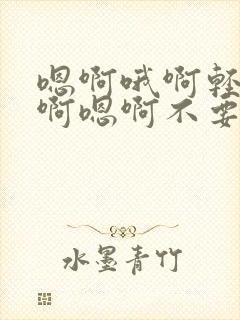 嗯啊哦啊轻
啊嗯啊不要
水墨青竹